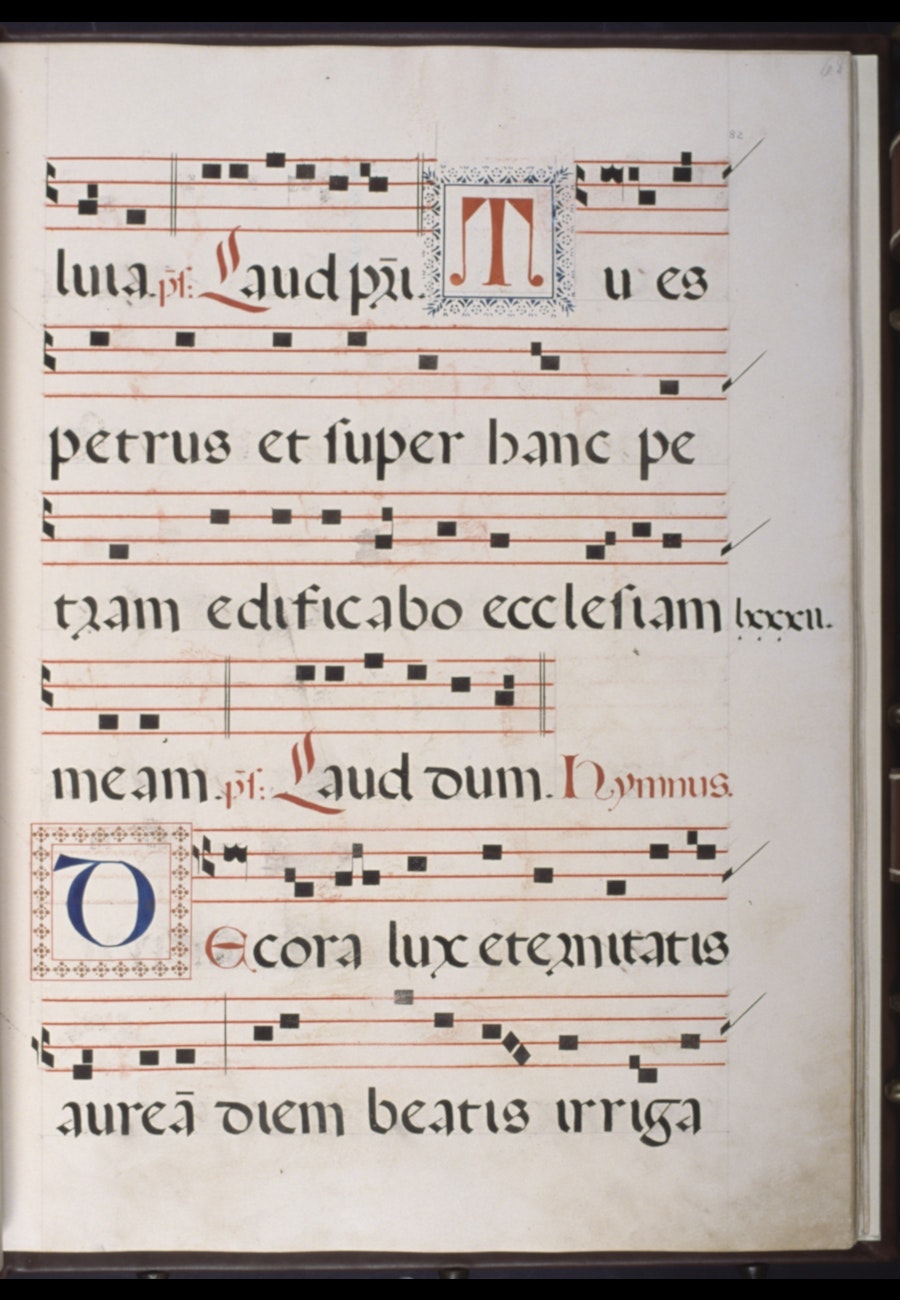 68
82
luia. ps: Laud pri. Tu es
petrus et super hanc pe
tram edificabo ecclesiam lxxxii.
meam. ps: Laud dum. Hymnus.
DEcora lux eternitatis
aureā diem beatis irriga